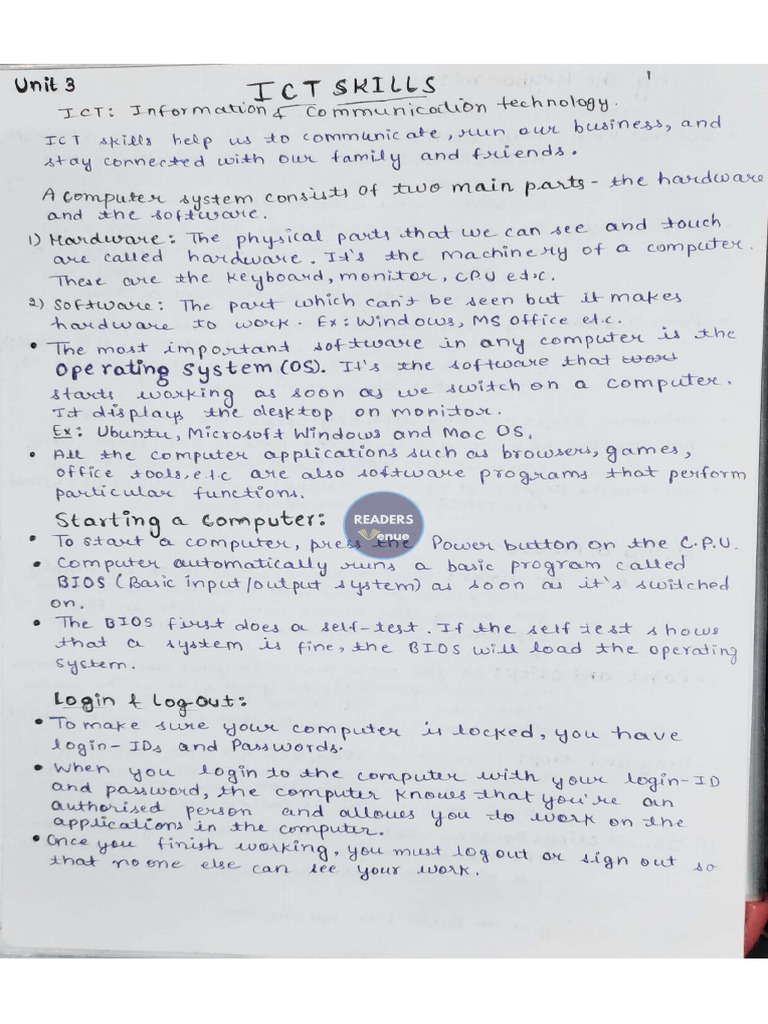 Unit 3
1
ICT SKILLS
ICT: Information & Communication technology.
ICT skills help us to communicate, run our business, and
stay connected with our family and friends.
A computer system consists of two main parts - the hardware
and the software.
1) Hardware: The physical parts that we can see and touch
are called hardware. It's the machinery of a computer.
These are the keyboard, monitor, CPU etc.
2) Software: The part which can't be seen but it makes
hardware to work. Ex: Windows, MS Office etc.
• The most important software in any computer is the
Operating System (OS). It's the software that work
starts working as soon as we switch on a computer.
It displays the desktop on monitor.
Ex: Ubuntu, Microsoft Windows and Mac OS.
• All the computer applications such as browsers, games,
office tools, etc are also software programs that perform
particular functions.
Starting a computer:
READERS
Venue
• To start a computer, press the Power button on the C.P.U.
• Computer automatically runs a basic program called
BIOS (Basic input/output system) as soon as it's switched
on.
• The BIOS first does a self-test. If the self test shows
that a system is fine, the BIOS will load the operating
system.
Login & Log-out:
• To make sure your computer is locked, you have
login-IDs and Passwords.
• When you login to the computer with your login-ID
and password, the computer knows that you're an
authorised person and allows you to work on the
applications in the computer.
• Once you finish working, you must log out or sign out so
that no one else can see your work.